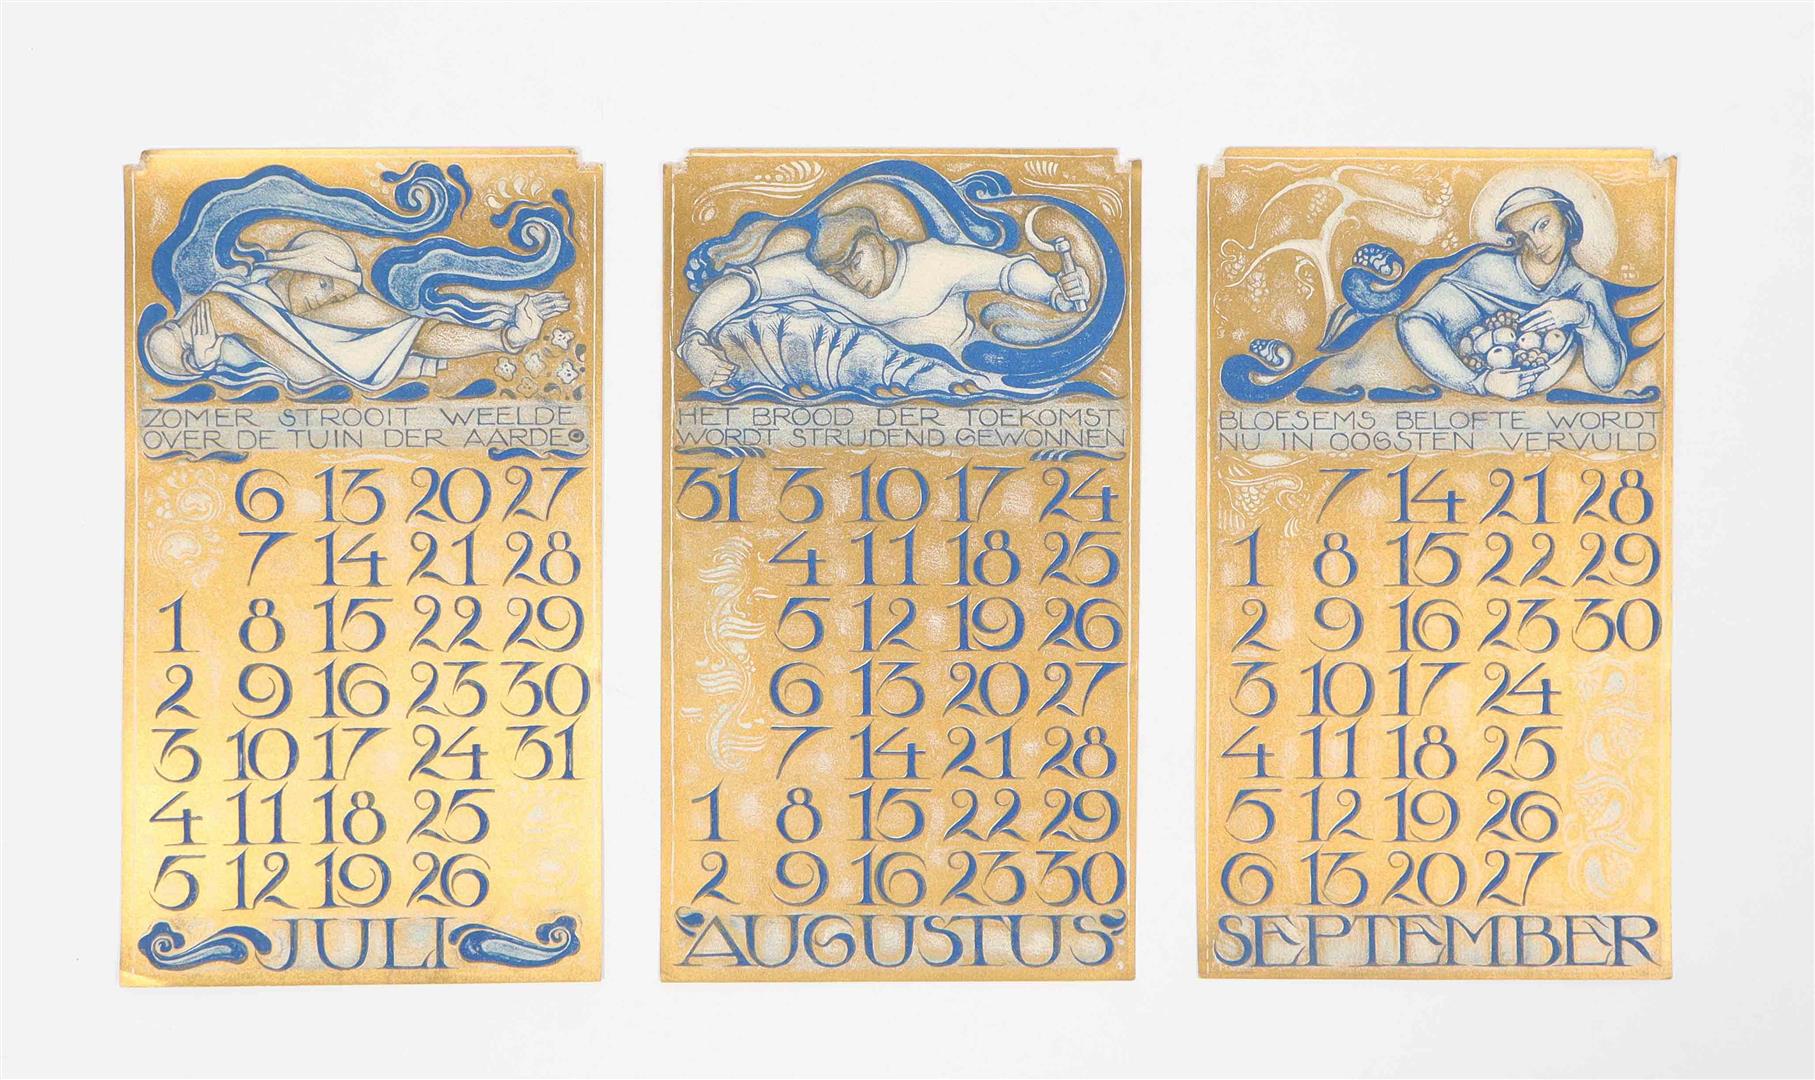 ZOMER STROOIT WEELDE
OVER DE TUIN DER AARDE
6 13 20 27
7 14 21 28
1 8 15 22 29
2 9 16 23 30
3 10 17 24 31
4 11 18 25
5 12 19 26
JULI
HET BROOD DER TOEKOMST
WORDT STRIJDEND GEWONNEN
31 3 10 17 24
4 11 18 25
5 12 19 26
6 13 20 27
7 14 21 28
1 8 15 22 29
2 9 16 23 30
AUGUSTUS
BLOESEMS BELOFTE WORDT
NU IN OOGSTEN VERVULD
7 14 21 28
1 8 15 22 29
2 9 16 23 30
3 10 17 24
4 11 18 25
5 12 19 26
6 13 20 27
SEPTEMBER